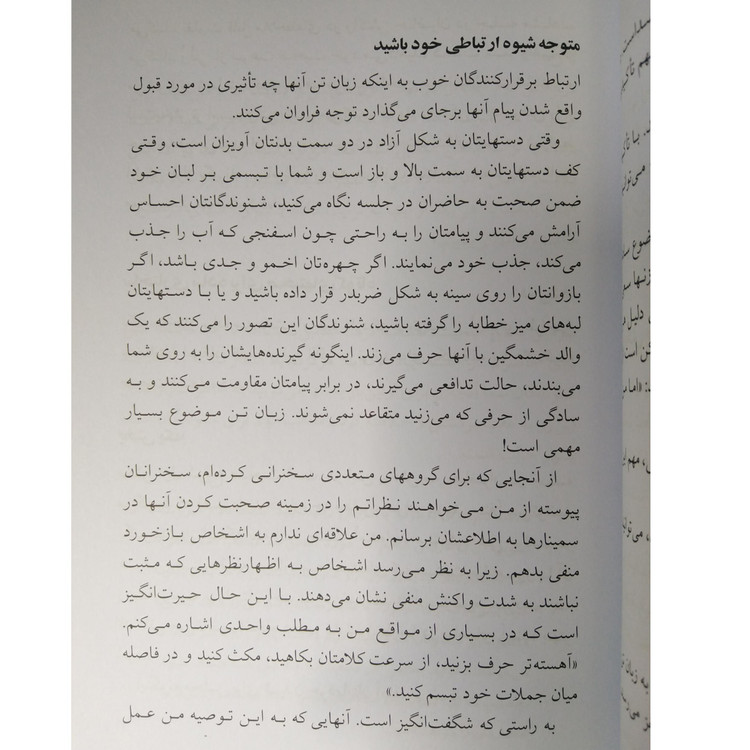 متوجه شیوه ارتباطی خود باشید
ارتباط برقرارکنندگان خوب به اینکه زبان تن آنها چه تأثیری در مورد قبول
واقع شدن پیام آنها برجای می‌گذارد توجه فراوان می‌کنند.
وقتی دستهایتان به شکل آزاد در دو سمت بدنتان آویزان است، وقتی
کف دستهایتان به سمت بالا و باز است و شما با تبسمی بر لبان خود
ضمن صحبت به حاضران در جلسه نگاه می‌کنید، شنوندگانتان احساس
آرامش می‌کنند و پیامتان را به راحتی چون اسفنجی که آب را جذب
می‌کند، جذب خود می‌نمایند. اگر چهره‌تان اخمو و جدی باشد، اگر
بازوانتان را روی سینه به شکل ضربدر قرار داده باشید و یا با دستهایتان
لبه‌های میز خطابه را گرفته باشید، شنوندگان این تصور را می‌کنند که یک
والد خشمگین با آنها حرف می‌زند. اینگونه گیرنده‌هایشان را به روی شما
می‌بندند، حالت تدافعی می‌گیرند، در برابر پیامتان مقاومت می‌کنند و به
سادگی از حرفی که می‌زنید متقاعد نمی‌شوند. زبان تن موضوع بسیار
مهمی است!
از آنجایی که برای گروههای متعددی سخنرانی کرده‌ام، سخنرانان
پیوسته از من می‌خواهند نظراتم را در زمینه صحبت کردن آنها در
سمینارها به اطلاعشان برسانم. من علاقه‌ای ندارم به اشخاص بازخورد
منفی بدهم. زیرا به نظر می‌رسد اشخاص به اظهارنظرهایی که مثبت
نباشند به شدت واکنش منفی نشان می‌دهند. با این حال حیرت‌انگیز
است که در بسیاری از مواقع من به مطلب واحدی اشاره می‌کنم.
«آهسته‌تر حرف بزنید، از سرعت کلامتان بکاهید، مکث کنید و در فاصله
میان جملات خود تبسم کنید.»
به راستی که شگفت‌انگیز است. آنهایی که به این توصیه من عمل